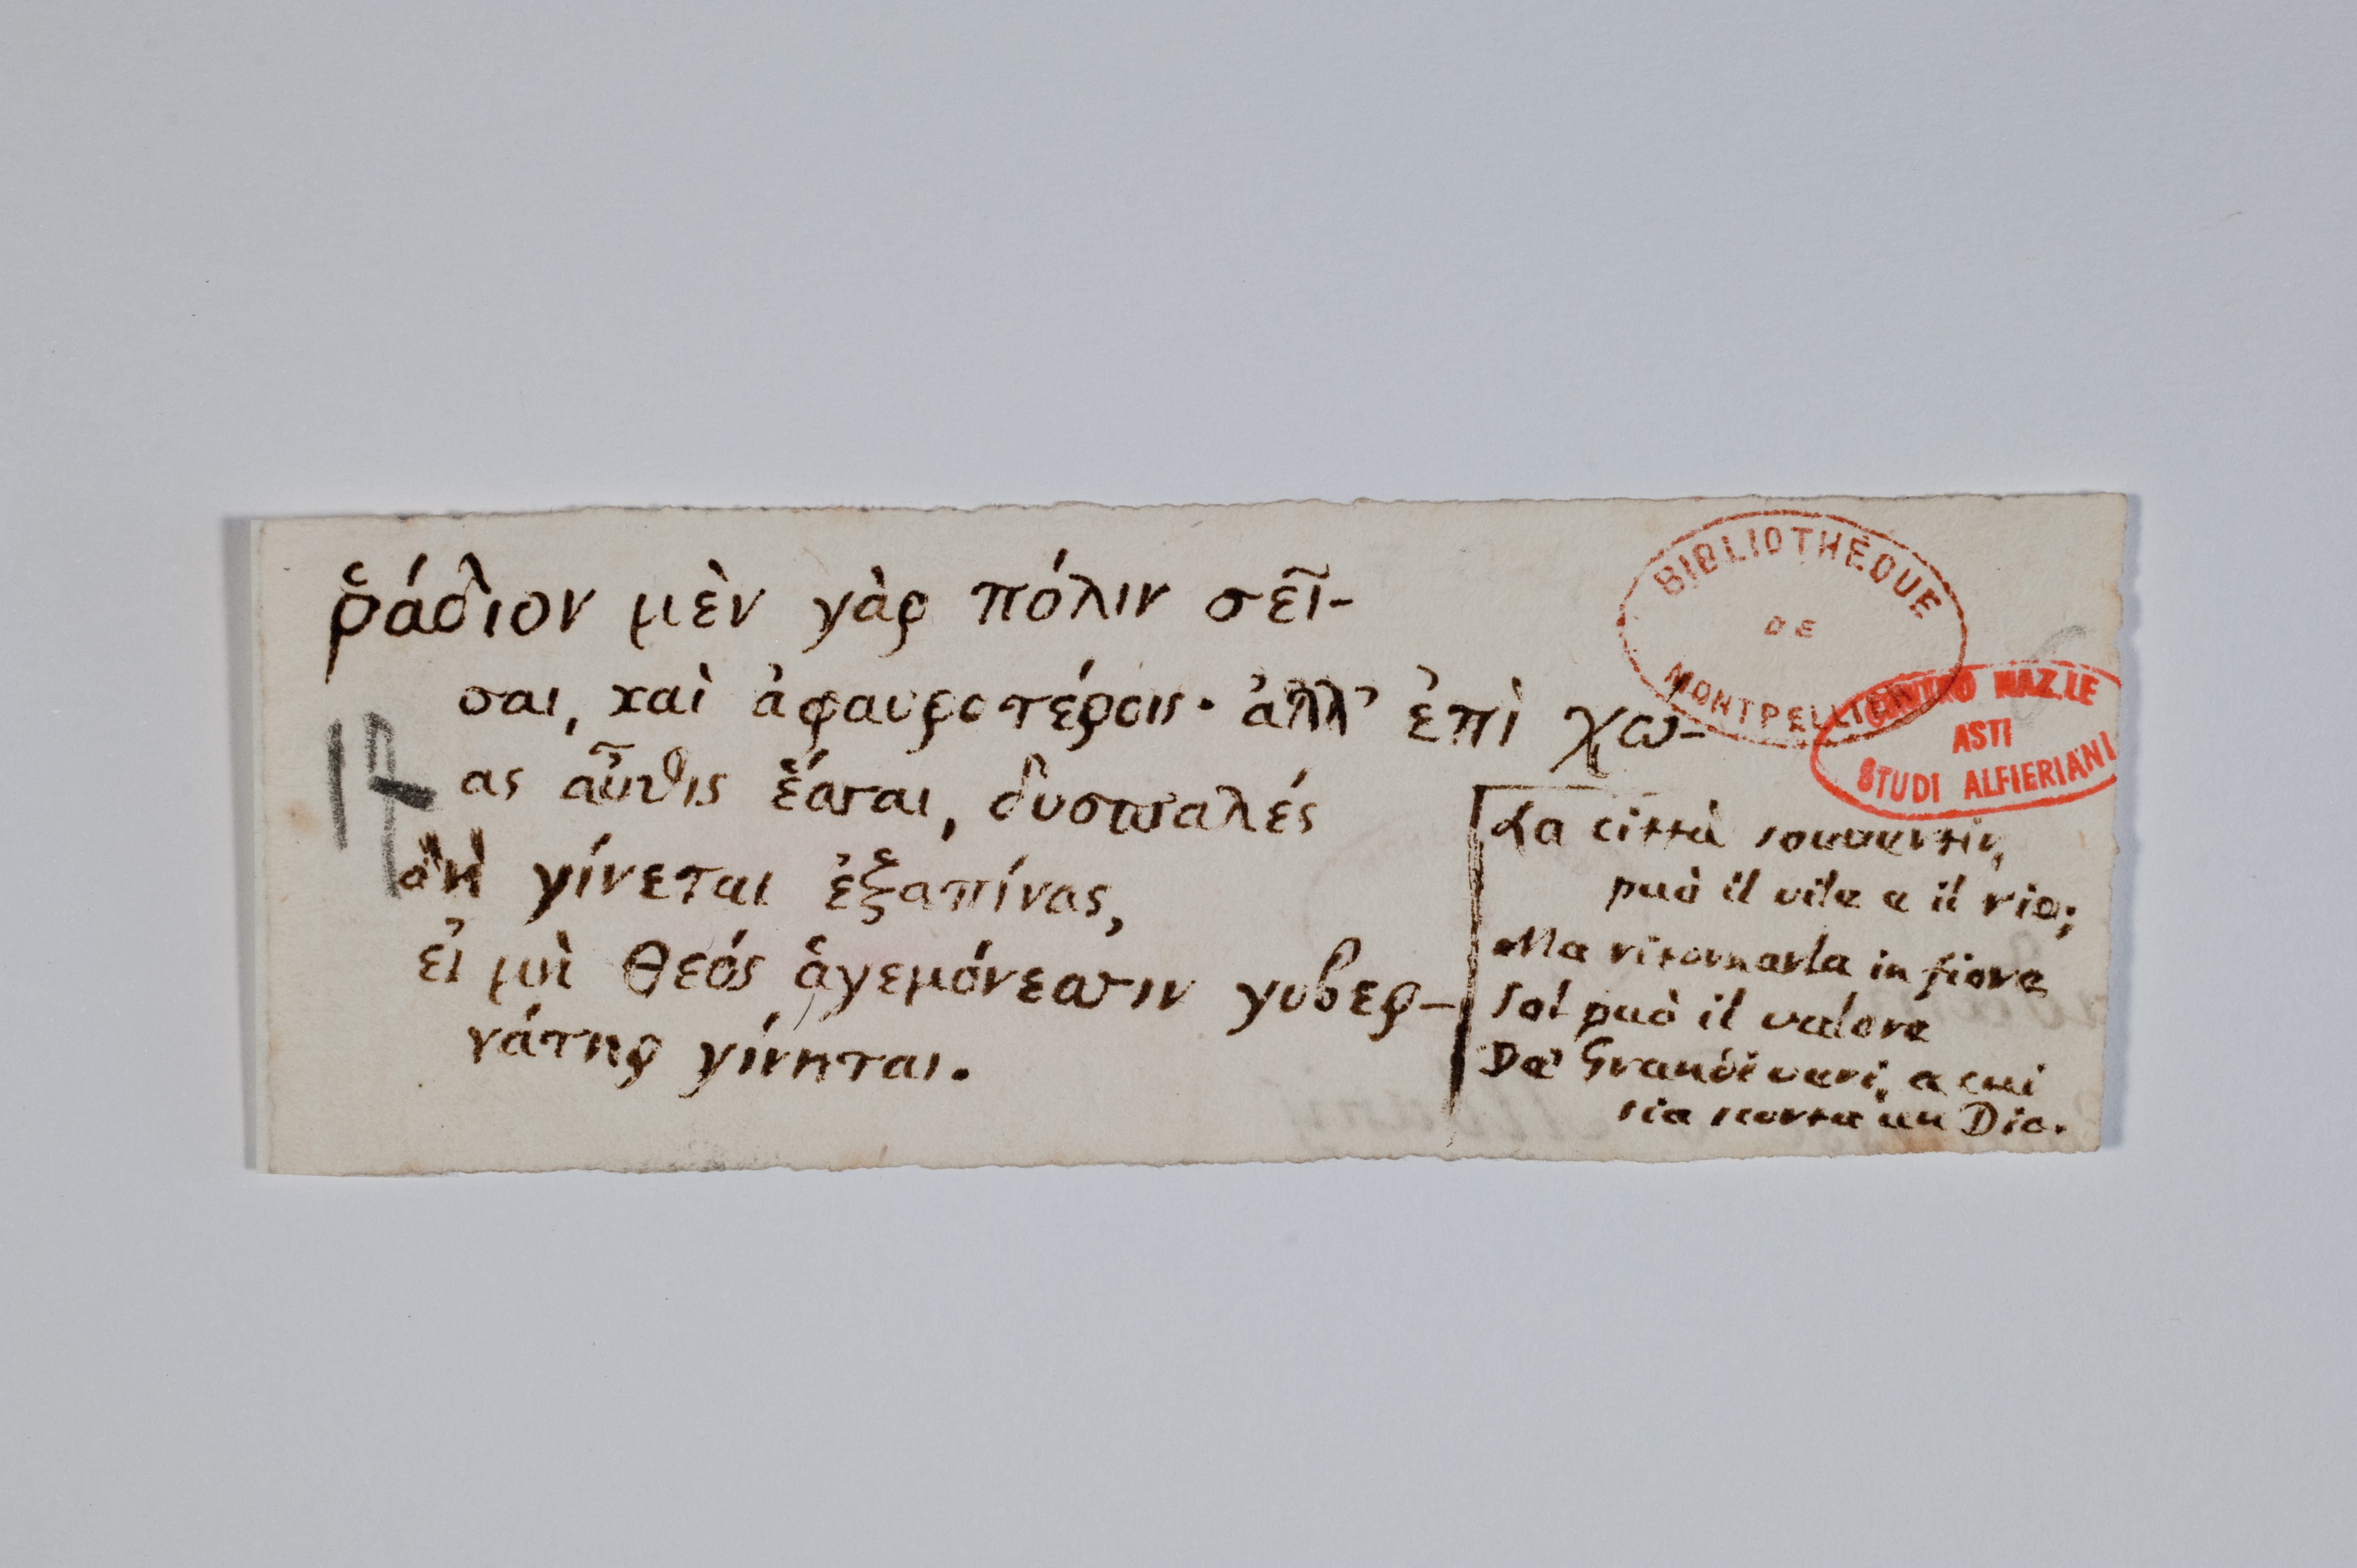 ῥάδιον μὲν γὰρ πόλιν σεῖ-
σαι, καὶ ἀφαυροτέροις· ἀλλ' ἐπὶ χώ-
ας αὖθις ἕσσαι, δυσπαλές
δὴ γίνεται ἐξαπίνας,
εἰ μὴ θεός ἁγεμόνεσσιν κυβερ-
νάτηρ γίνηται.
17
La città sovvertir,
può il vile e il rio;
Ma ritornarla in fiore
Sol può il valore
De' Grandi veri, a cui
sia scorta un Dio.
BIBLIOTHÈQUE
DE
MONTPELLIER
CENTRO NAZ.LE
ASTI
STUDI ALFIERIANI